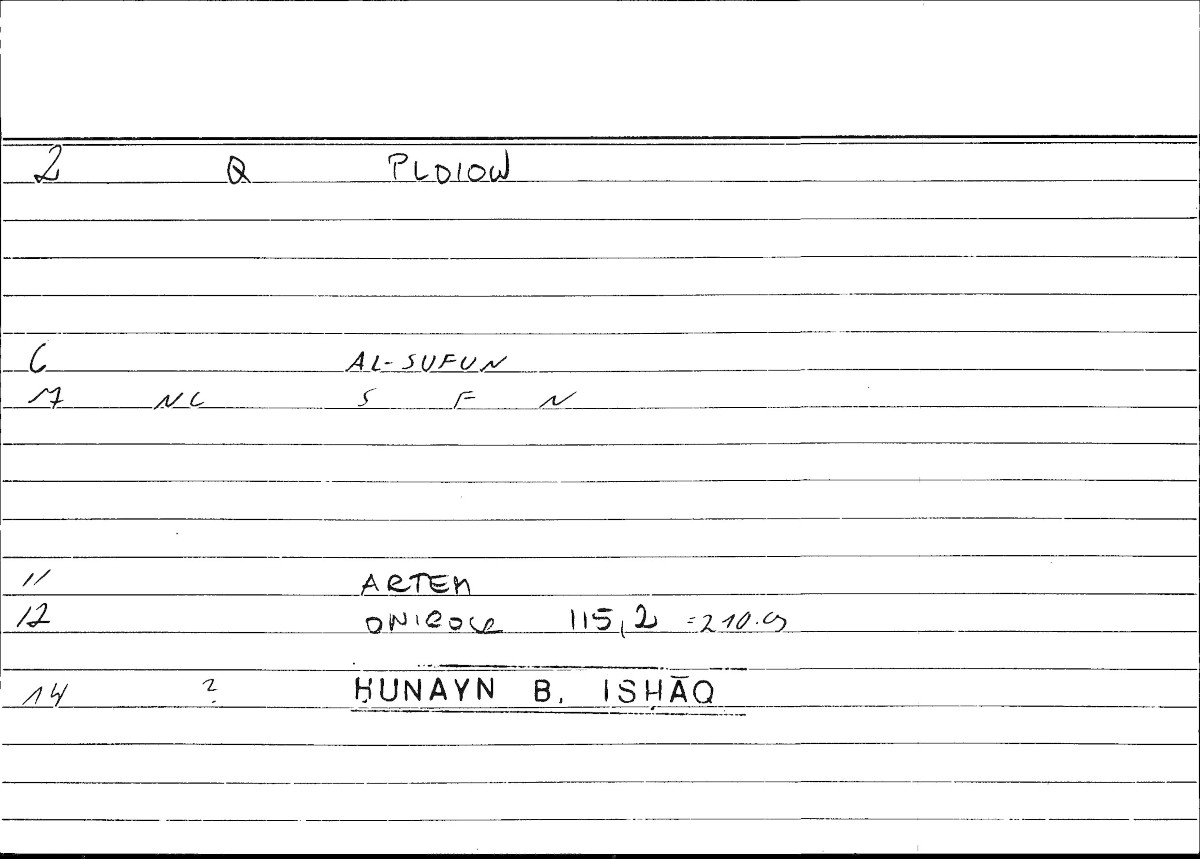 2 Q PLOIOW
6 AL-SUFUN
17 NC S F N
11 ARTEM
12 ONIROCR 115,2 =210.9
14 ? ḤUNAYN B. ISḤĀQ